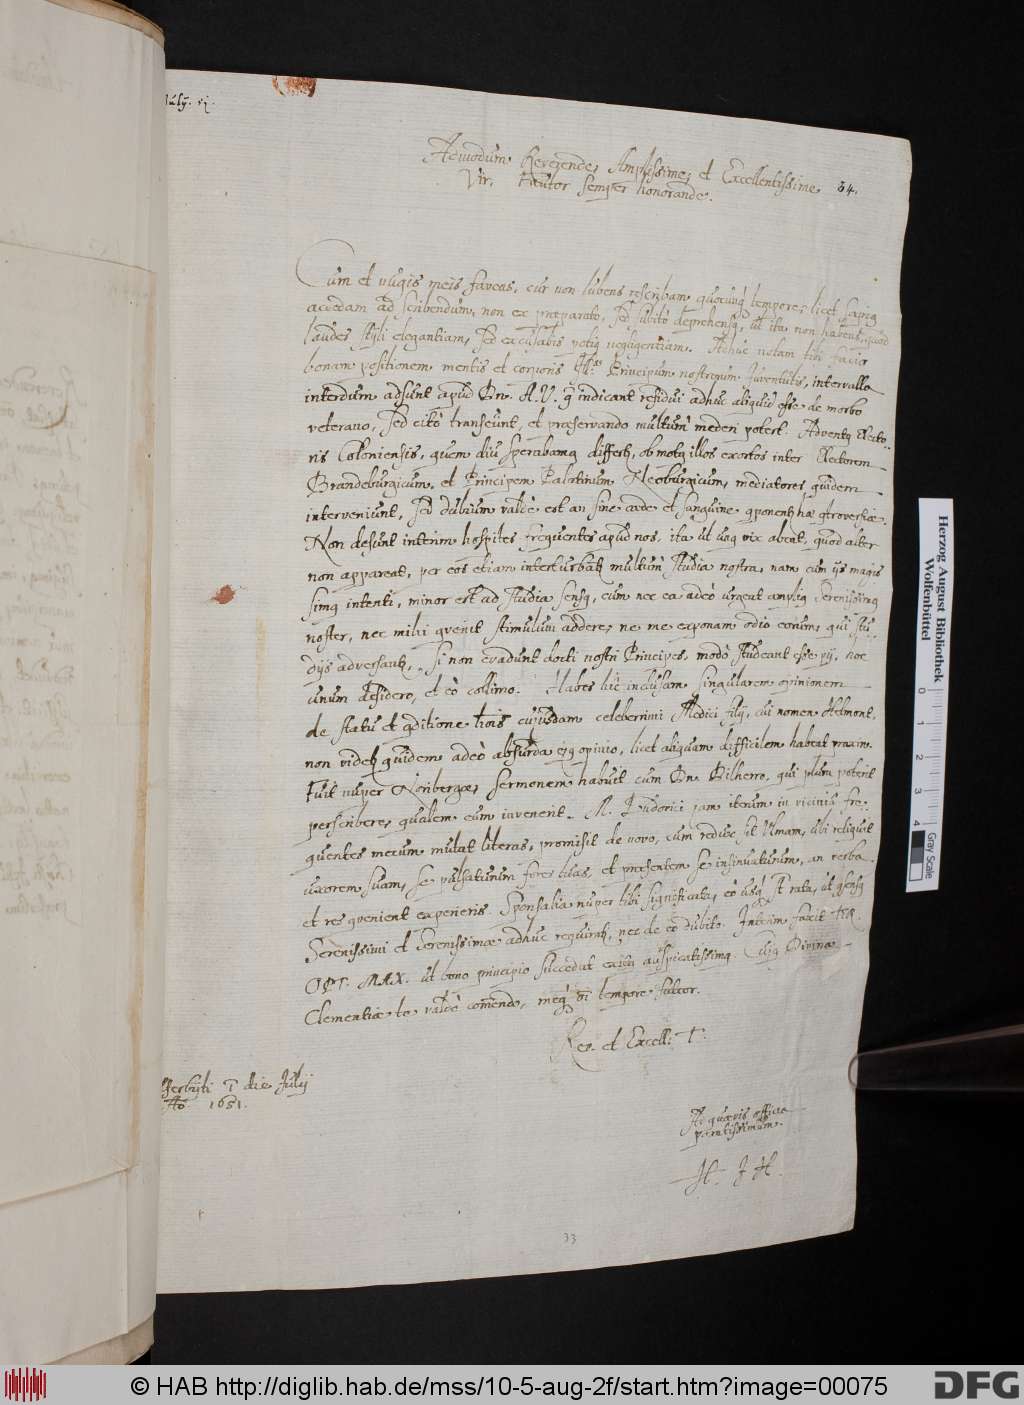 July. vj.
Admodum Reverende, Amplissime, et Excellentissime 34.
Vir. Fautor semper honorande.
Cum et nugis meis faveas, cur non lubens rescribam quocunq tempore, licet sæpiq
accedam ad scribendum, non ex præparato, sed subitò deprehensq, ut ita non habeas, quod
laudes styli elegantiam, sed excusabis potiq negligentiam. Adhuc notam tibi facio
bonam positionem mentis et corporis Principum nostrorum Juventutis, intervalla
interdum adsunt apud Dn. A. V. q indicant residui adhuc aliquid esse de morbo
veterano, sed citò transeunt, et præservando multum mederi potest. Adventq Electo-
ris Coloniensis, quem diu sperabamq differtr, ob motq illos exortos inter Electorem
Brandeburgicum, et Principem Palatinum Neoburgicum, mediatores quidem
interveniunt, sed dubium valdè est an sine cæde et sanguine qponentr hæ qtroversiæ.
Non desunt interim hospites frequentes apud nos, ita ut unq vix abeat, quod alter
non appareat, per eos etiam interturbatr multum studia nostra, nam cum ijs magis
simq intenti, minor est ad studia sensq, cum nec ea adeò urgeat ampliq Serenissimq
noster, nec mihi qvenit stimulum addere, ne me exponam odio eorum, qui stu-
dijs adversantr, si non evadunt docti nostri Principes, modò studeant esse pij, hoc
unum desidero, et eò collimo. Habes hîc inclusam singularem opinionem
de statu et qditione cujusdam celeberrimi Medici filij, cui nomen Helmont,
non videtr quidem adeò absurda ejq opinio, licet aliquam difficilem habeat praxin.
Fuit nuper Noribergæ, sermonem habuit cum Dn. Dilherro, qui plura poterit
perscribere, qualem eum invenerit. M. Ludovici jam iterum in vicinia fre-
quentes mecum mutat literas, promisit de novo, cum redux sit Ulmam, ubi reliquit
uxorem suam, se pulsaturum fores tuas, et præsentem se insinuaturum, an verba
et res qvenient experieris. Sponsalia nuper tibi significata, eò usq st rata, ut qsensq
Serenissimi et Serenissimæ adhuc requiratr, nec de eo dubito. Interim faxit
OPT. MAX. ut bono principio succedat exitq auspicatissimq. Cujq Divinæ
Clementiæ te valdè commendo, meq omni tempore fautor.
Rev. et Excell. T.
die Julij
Ao. 1651.
Ad quævis officia
paratissimum.
H. J H.
33
Herzog August Bibliothek
Wolfenbüttel
0 1 2 3 4 Gray Scale
© HAB http://diglib.hab.de/mss/10-5-aug-2f/start.htm?image=00075
DFG